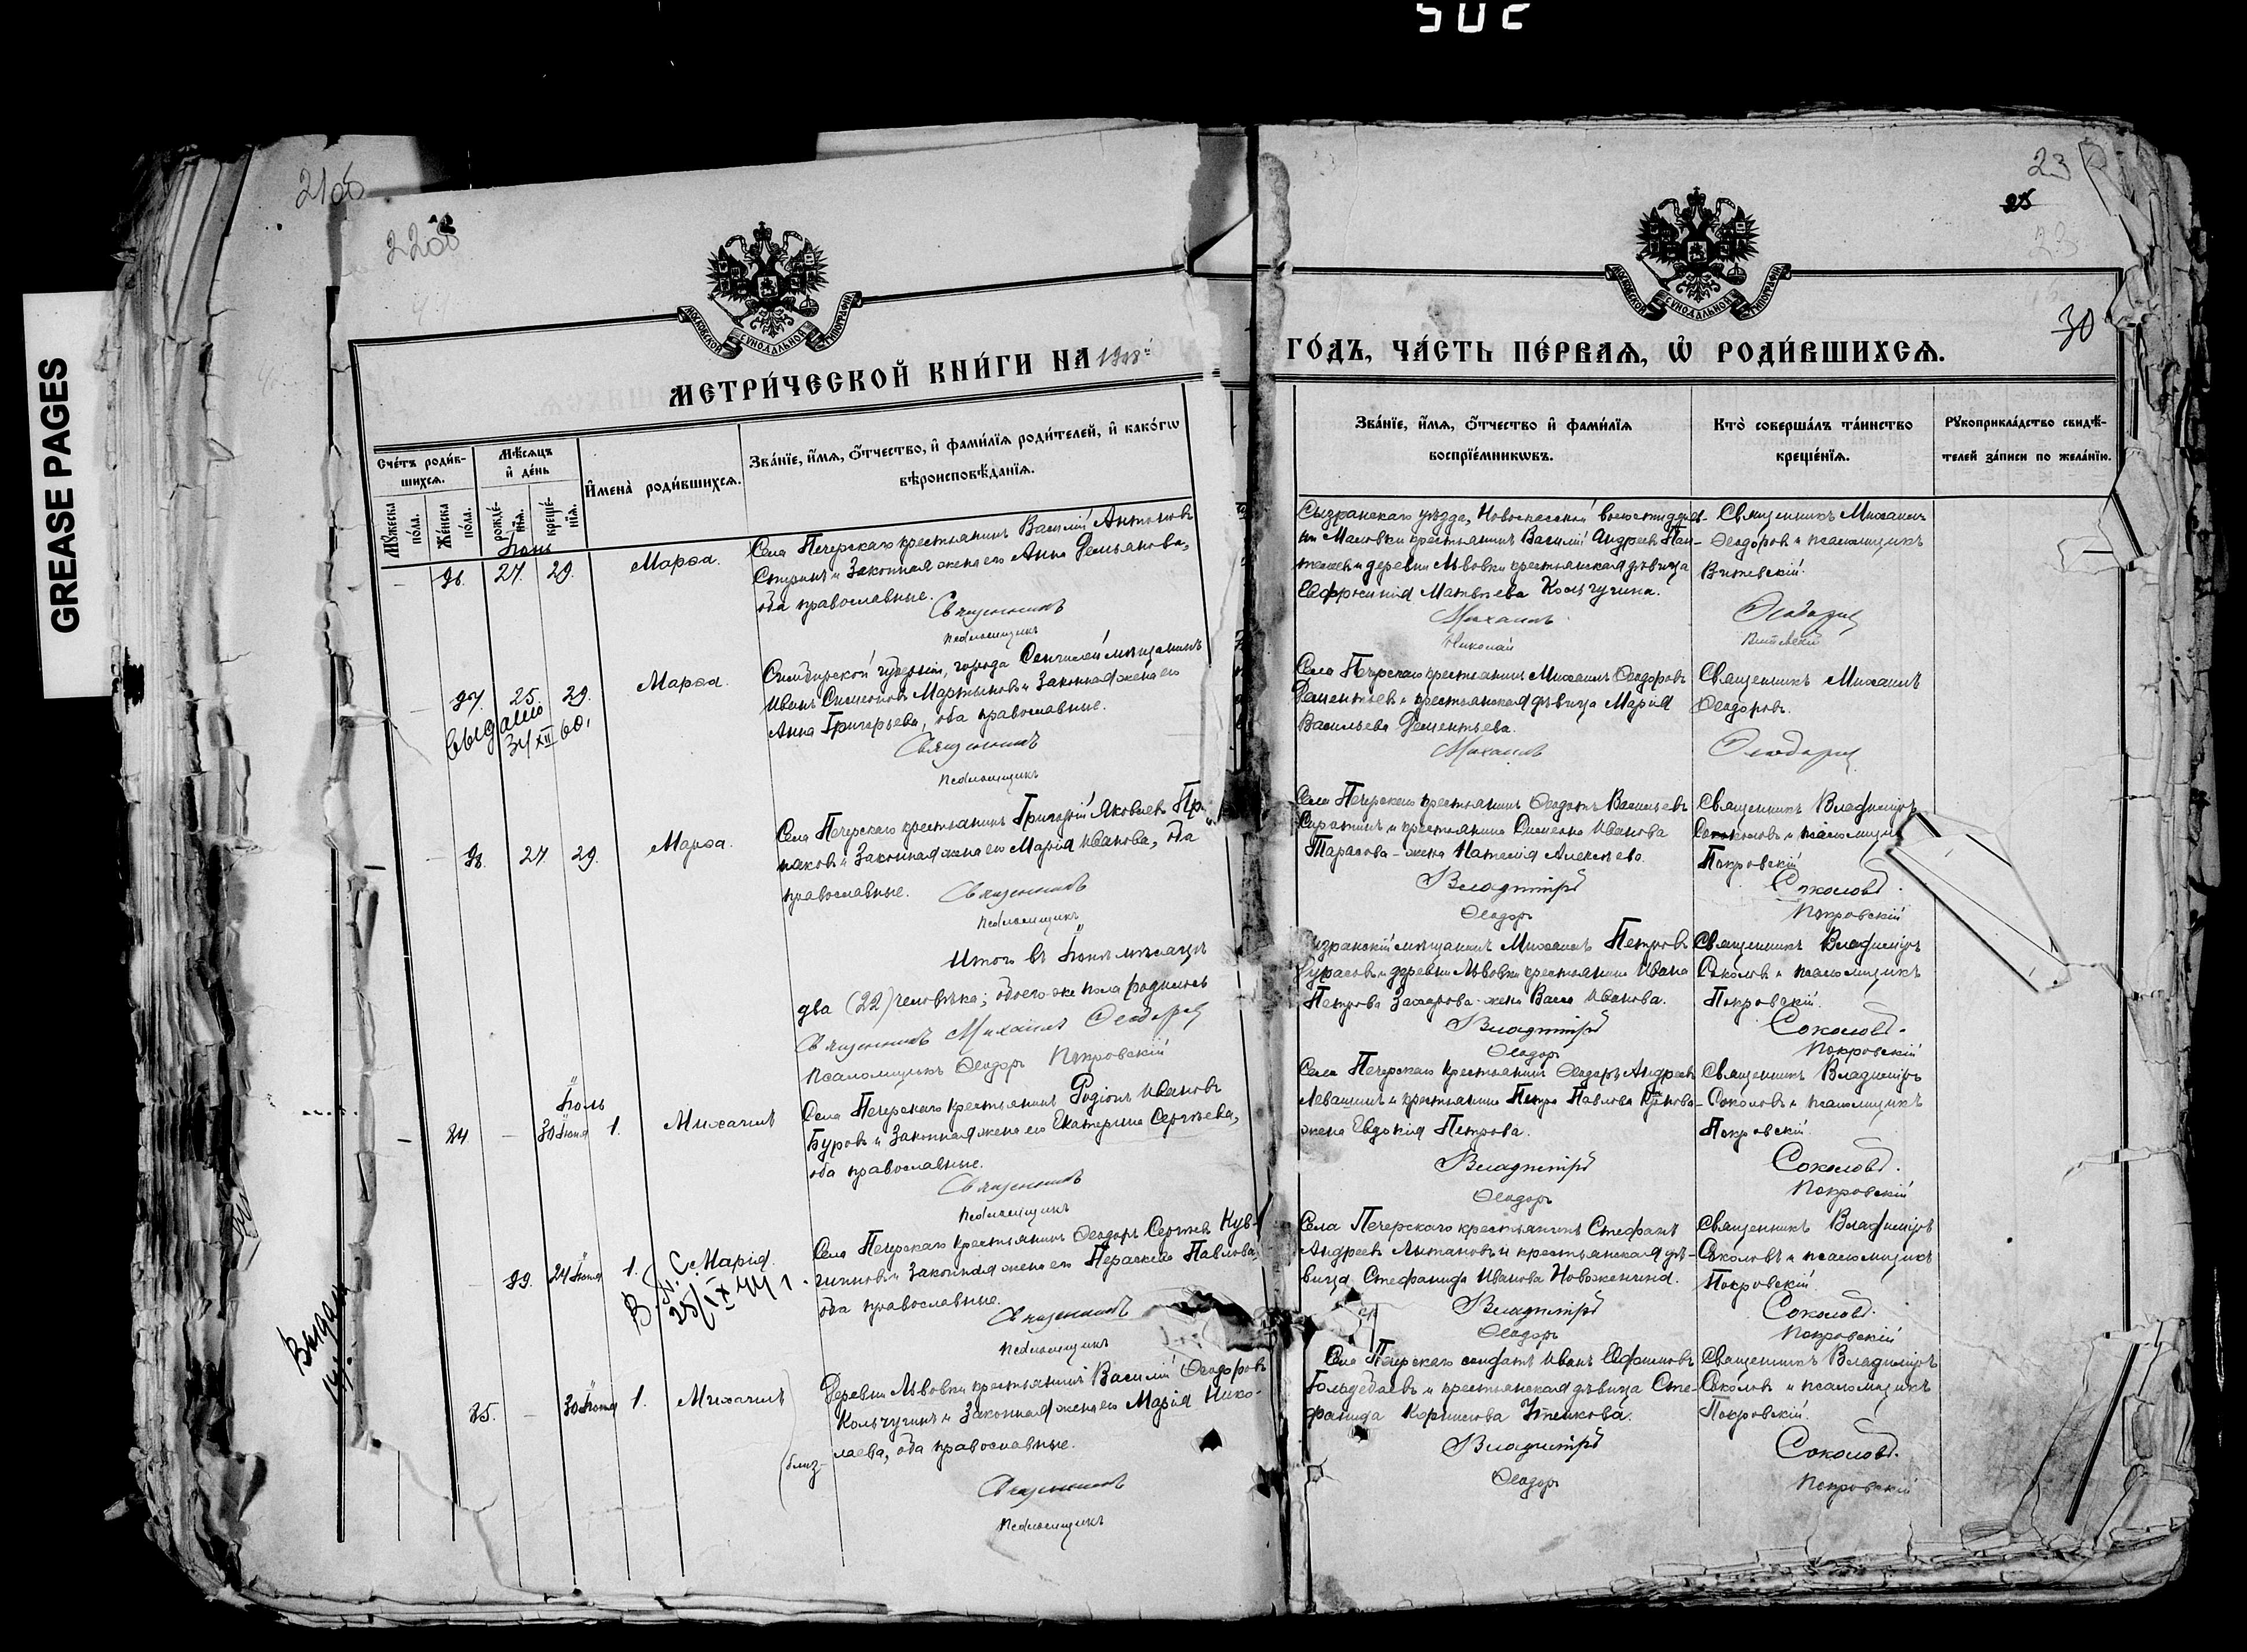 502
GREASE PAGES
2106
23
МОСКОВСКОЙ СѴНОДАЛЬНОЙ ТИПОГРАФІИ
МОСКОВСКОЙ СѴНОДАЛЬНОЙ ТИПОГРАФІИ
30
МЕТРИ́ЧЕСКОЙ КНИ́ГИ НА 1908й
ГО́ДЪ, ЧА́СТЬ ПЕ́РВАѦ, Ѡ҆ РОДИ́ВШИХСѦ.
Сче́тъ роди́в-
шихсѧ.
Мꙋжеска по́ла.
Же́нска по́ла.
Мѣ́сѧцъ
и҆ де́нь
рожде́-
нїѧ.
креще́-
нїѧ.
И҆мена̀ роди́вшихсѧ.
Зва́нїе, и҆́мѧ, ѻ҆́тчество, и҆ фами́лїѧ роди́телей, и҆ како́гѡ
вѣроисповѣ́данїѧ.
Зва́нїе, и҆́мѧ, ѻ҆́тчество и҆ фами́лїѧ
воспрїе́мникѡвъ.
Кто̀ соверша́лъ та́инство
креще́нїѧ.
Рꙋкоприкла́дство свидѣ́-
телей за́писи по жела́нїю.
Іюнь
27. 29.
Марѳа.
Села Печерскаго крестьянинъ Василій Антоновъ
и законная жена его Анна Демьянова,
оба православные.
Священникъ
Псаломщикъ
Сызранскаго уѣзда, Новоспасской волости
крестьянинъ Василій Андреевъ
деревни Львовки крестьянская дѣвица
Евфросинія Матвѣева Кольчугина.
Михаилъ
Николай
Священникъ Михаилъ
Ѳеодоровъ и псаломщикъ
Витевскій.
Ѳеодоровъ
Витевскій
25. 29.
Выдано
XII 60.
Марѳа.
Симбирской губерніи, города Сенгилея мѣщанинъ
Иванъ Симеоновъ Мартыновъ и законная жена его
Анна Григорьева, оба православные.
Священникъ
Псаломщикъ
Села Печерскаго крестьянинъ Михаилъ Ѳеодоровъ
Дементьевъ и крестьянская дѣвица Марія
Васильева Дементьева.
Михаилъ
Священникъ Михаилъ
Ѳеодоровъ.
Ѳеодоровъ
27. 29.
Марѳа.
Села Печерскаго крестьянинъ Григорій Яковлевъ
и законная жена его Марія Иванова, оба
православные.
Священникъ
Псаломщикъ
Села Печерскаго крестьянинъ Ѳеодотъ Васильевъ
и крестьянина Симеона Иванова
Тарасова - жена Наталія Алексѣева.
Владиміръ
Ѳеодоръ
Священникъ Владиміръ
Соколовъ и псаломщикъ
Покровскій
Соколовъ.
Покровскій
Итого въ Іюнѣ мѣсяцѣ
два (22) человѣка; обоего же пола родилось
Священникъ Михаилъ Ѳеодоровъ
Псаломщикъ Ѳеодоръ Покровскій
мѣщанинъ Михаилъ Петровъ
и деревни Львовки крестьянина Ивана
Петрова Захарова - жена Васса Иванова.
Владиміръ
Ѳеодоръ
Священникъ Владиміръ
Соколовъ и псаломщикъ
Покровскій.
Соколовъ.
Покровскій
Іюль
84 – 30 Іюня 1.
Михаилъ
Села Печерскаго крестьянинъ Родіонъ Ивановъ
Буровъ и законная жена его Екатерина Сергѣева,
оба православные.
Священникъ
Псаломщикъ
Села Печерскаго крестьянинъ Ѳеодоръ Андреевъ
Левашинъ и крестьянина Петра Павлова
жена Евдокія Петрова.
Владиміръ
Ѳеодоръ
Священникъ Владиміръ
Соколовъ и псаломщикъ
Покровскій.
Соколовъ.
Покровскій
24 Іюня 1.
Марія.
25/IX 44 г.
Села Печерскаго крестьянинъ Ѳеодоръ Сергѣевъ Кув-
шиновъ и законная жена его Параскева Павлова,
оба православные.
Священникъ
Псаломщикъ
Села Печерскаго крестьянинъ Стефанъ
Андреевъ и крестьянская дѣ-
вица Стефанида Иванова Новоженина.
Владиміръ
Ѳеодоръ
Священникъ Владиміръ
Соколовъ и псаломщикъ
Покровскій
Соколовъ.
Покровскій
Выдан
85. – 30 Іюня 1.
Михаилъ
(близ-
Деревни Львовки крестьянинъ Василій Ѳеодоровъ
Кольчугинъ и законная жена его Марія Нико-
лаева, оба православные.
Священникъ
Псаломщикъ
Села Печерскаго солдатъ Иванъ
и крестьянская дѣвица Сте-
фанида Корнилова
Владиміръ
Ѳеодоръ
Священникъ Владиміръ
Соколовъ и псаломщикъ
Покровскій.
Соколовъ.
Покровскій